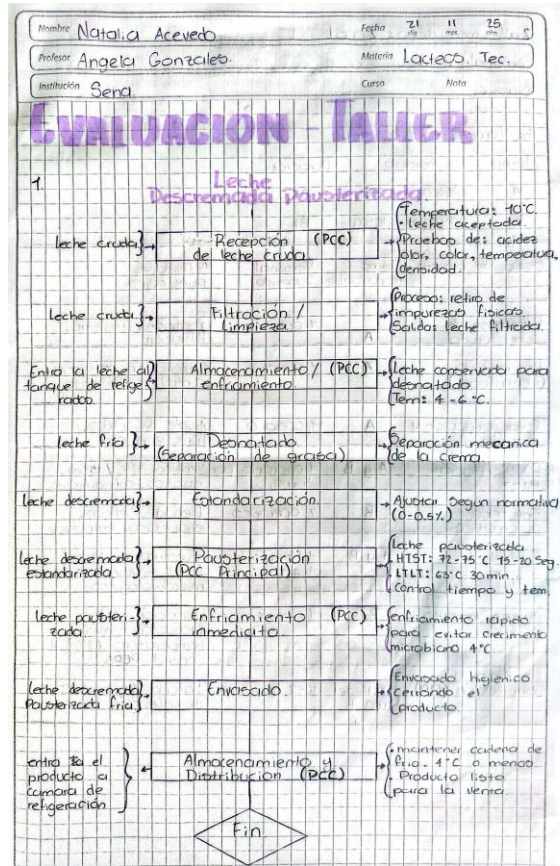 Nombre Natalia Acevedo Fecha 21 11 25
día mes año
Profesor Angela Gonzales. Materia Lacteos. Tec.
Institución Sena. Curso Nota
EVALUACIÓN - TALLER
1. Leche
Descremada Pausterizada.
leche cruda
Recepción (PCC)
de leche cruda
Temperatura: 10°C.
leche aceptada.
Pruebas de: acidez
olor, color, temperatura,
densidad.
Leche cruda
Filtración /
Limpieza
Proceso: retiro de
impurezas fisicas.
Salida: leche filtrada.
Entra la leche al
tanque de refige
rados.
Almacenamiento / (PCC)
enfriamiento
Leche conservada para
desnatado
Tem: 4 - 6 °C.
leche fria
Desnatado
(Separación de grasa)
Separación mecanica
de la crema.
leche descremada
Estandarización.
Ajustar segun normativa
(0-0.5%)
leche descremada
estandarizada.
Pausterización
(PCC Principal)
leche pausterizada
HTST: 72-75°C 15-20 Seg.
LTLT: 63°C 30min.
Control tiempo y tem.
leche pausteri-
zada.
Enfriamiento (PCC)
inmediato.
Enfriamiento rapido
para evitar crecimiento
microbiano 4°C
leche descremada
Pausterizada fria
Envasado.
Envasado higienico
cerrando el
producto.
entra el
producto a
camara de
refigeración
Almacenamiento y
Distribución (PCC)
mantener cadena de
frio. 4°C o menos.
Producto listo
para la venta.
Fin.